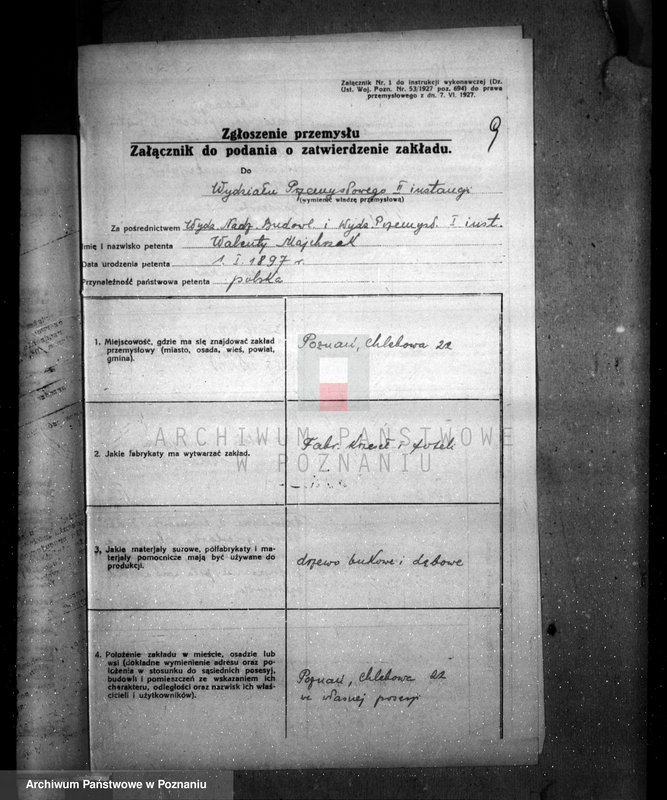 Załącznik Nr. 1 do instrukcji wykonawczej (Dz.
Ust. Woj. Pozn. Nr. 53/1927 poz. 694) do prawa
przemysłowego z dn. 7. VI. 1927.
9
Zgłoszenie przemysłu
Załącznik do podania o zatwierdzenie zakładu.
Do
Wydziału Przemysłowego II instancji
(wymienić władzę przemysłową)
Za pośrednictwem Wydz. Nadz. Budowl. i Wydz. Przemysł. I inst.
Imię i nazwisko petenta Walenty Majchrzak
Data urodzenia petenta 1. I. 1897 r.
Przynależność państwowa petenta polska
1. Miejscowość, gdzie ma się znajdować zakład
przemysłowy (miasto, osada, wieś, powiat,
gmina).
Poznań, Chlebowa 22
2. Jakie fabrykaty ma wytwarzać zakład.
Fabr. krzeseł i foteli
3. Jakie materjały surowe, półfabrykaty i ma-
terjały pomocnicze mają być używane do
produkcji.
drzewo bukowe i dębowe
4. Położenie zakładu w mieście, osadzie lub
wsi (dokładne wymienienie adresu oraz po-
łożenia w stosunku do sąsiednich posesyj,
budowli i pomieszczeń ze wskazaniem ich
charakteru, odległości oraz nazwisk ich właś-
cicieli i użytkowników).
Poznań, Chlebowa 22
we własnej posesji
ARCHIWUM PAŃSTWOWE
W POZNANIU
Archiwum Państwowe w Poznaniu